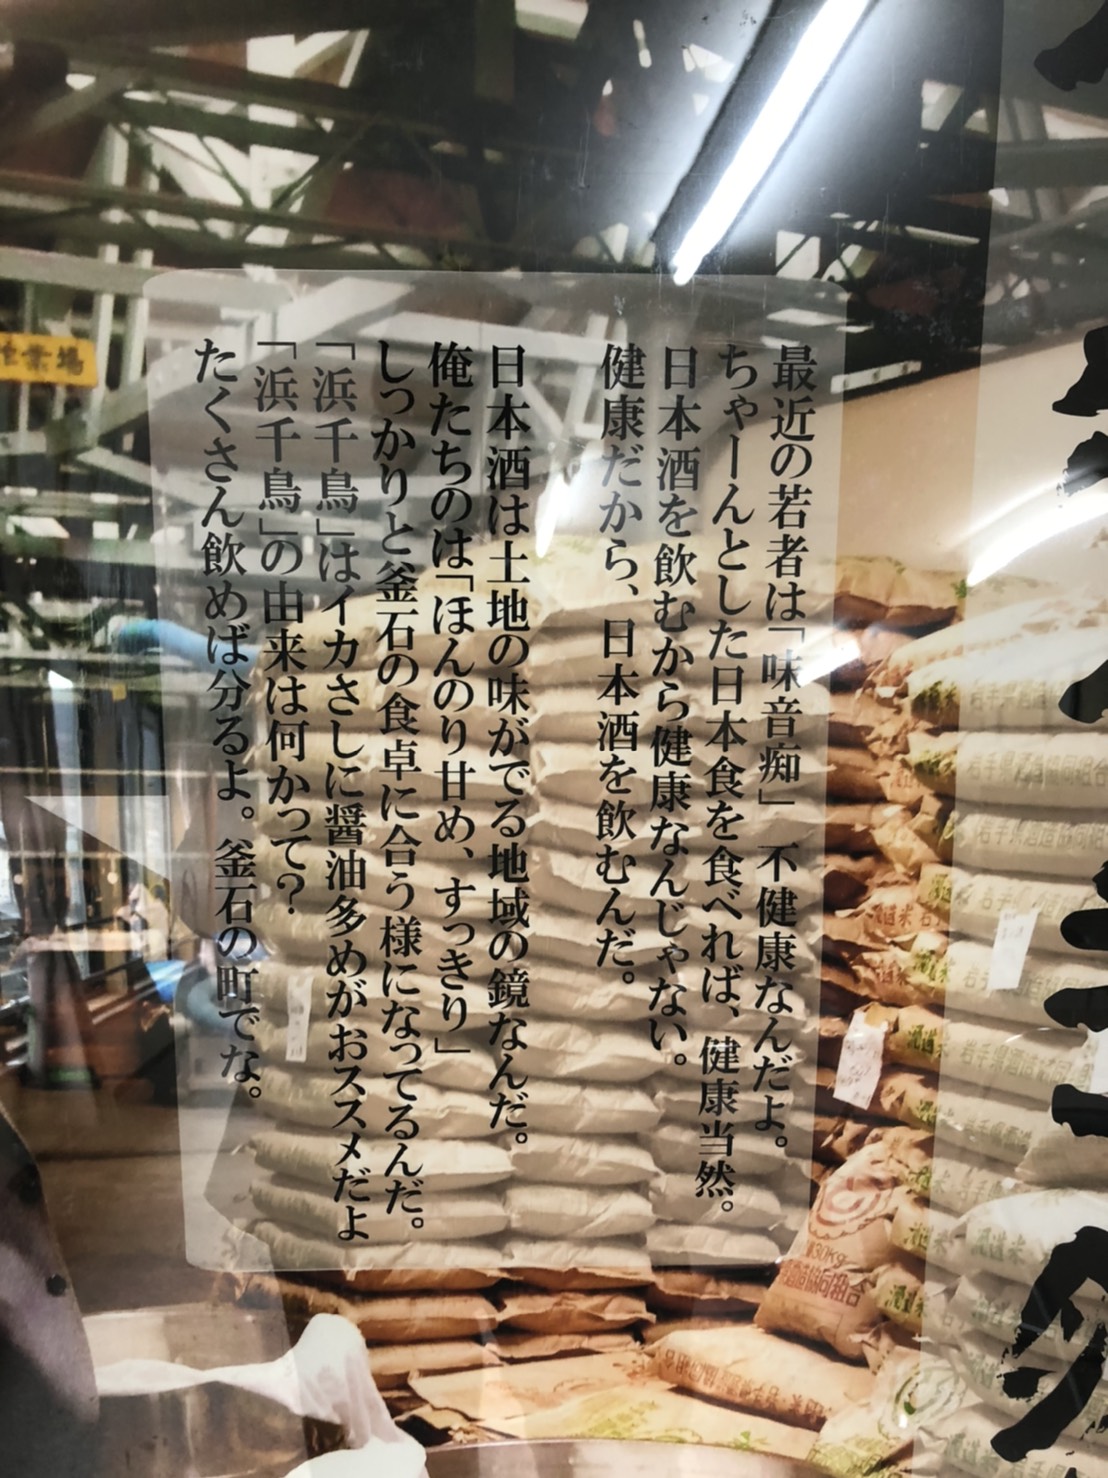 最近の若者は「味音痴」不健康なんだよ。
ちゃーんとした日本食を食べれば、健康当然。
日本酒を飲むから健康なんじゃない。
健康だから、日本酒を飲むんだ。
日本酒は土地の味がでる地域の鏡なんだ。
俺たちのは「ほんのり甘め、すっきり」
しっかりと釜石の食卓に合う様になってるんだ。
「浜千鳥」はイカさしに醤油多めがおススメだよ
「浜千鳥」の由来は何かって?
たくさん飲めば分るよ。釜石の町でな。
作業場
30Kg